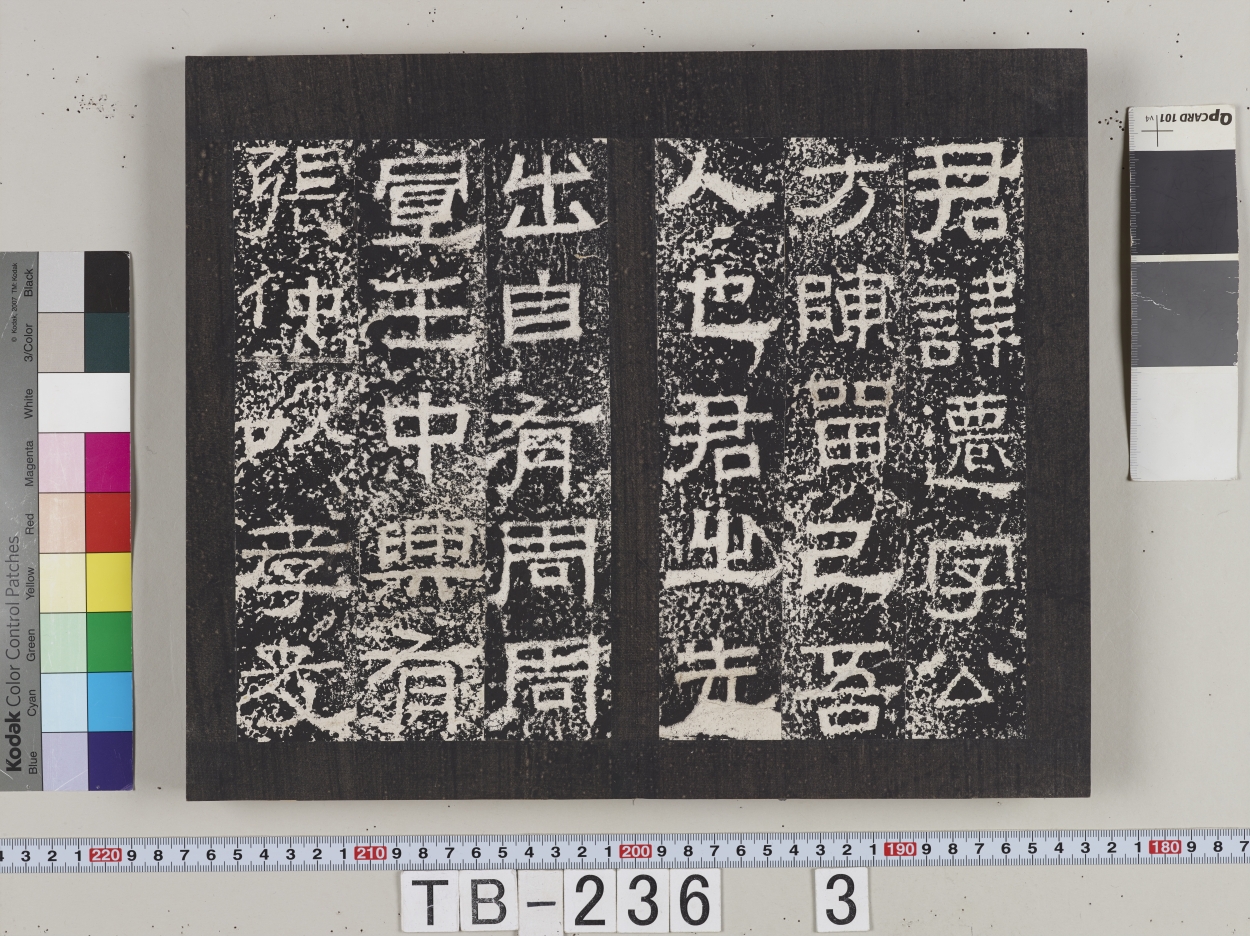 君諱遷字公
方陳留己吾
人也君之先
出自有周周
宣王中興有
張仲以孝友
QPCARD 101 v4
Kodak Color Control Patches
© Kodak, 2007 TM: Kodak
Blue Cyan Green Yellow Red Magenta White 3/Color Black
4 3 2 1 220 9 8 7 6 5 4 3 2 1 210 9 8 7 6 5 4 3 2 1 200 9 8 7 6 5 4 3 2 1 190 9 8 7 6 5 4 3 2 1 180 9 8 7
TB-236 3